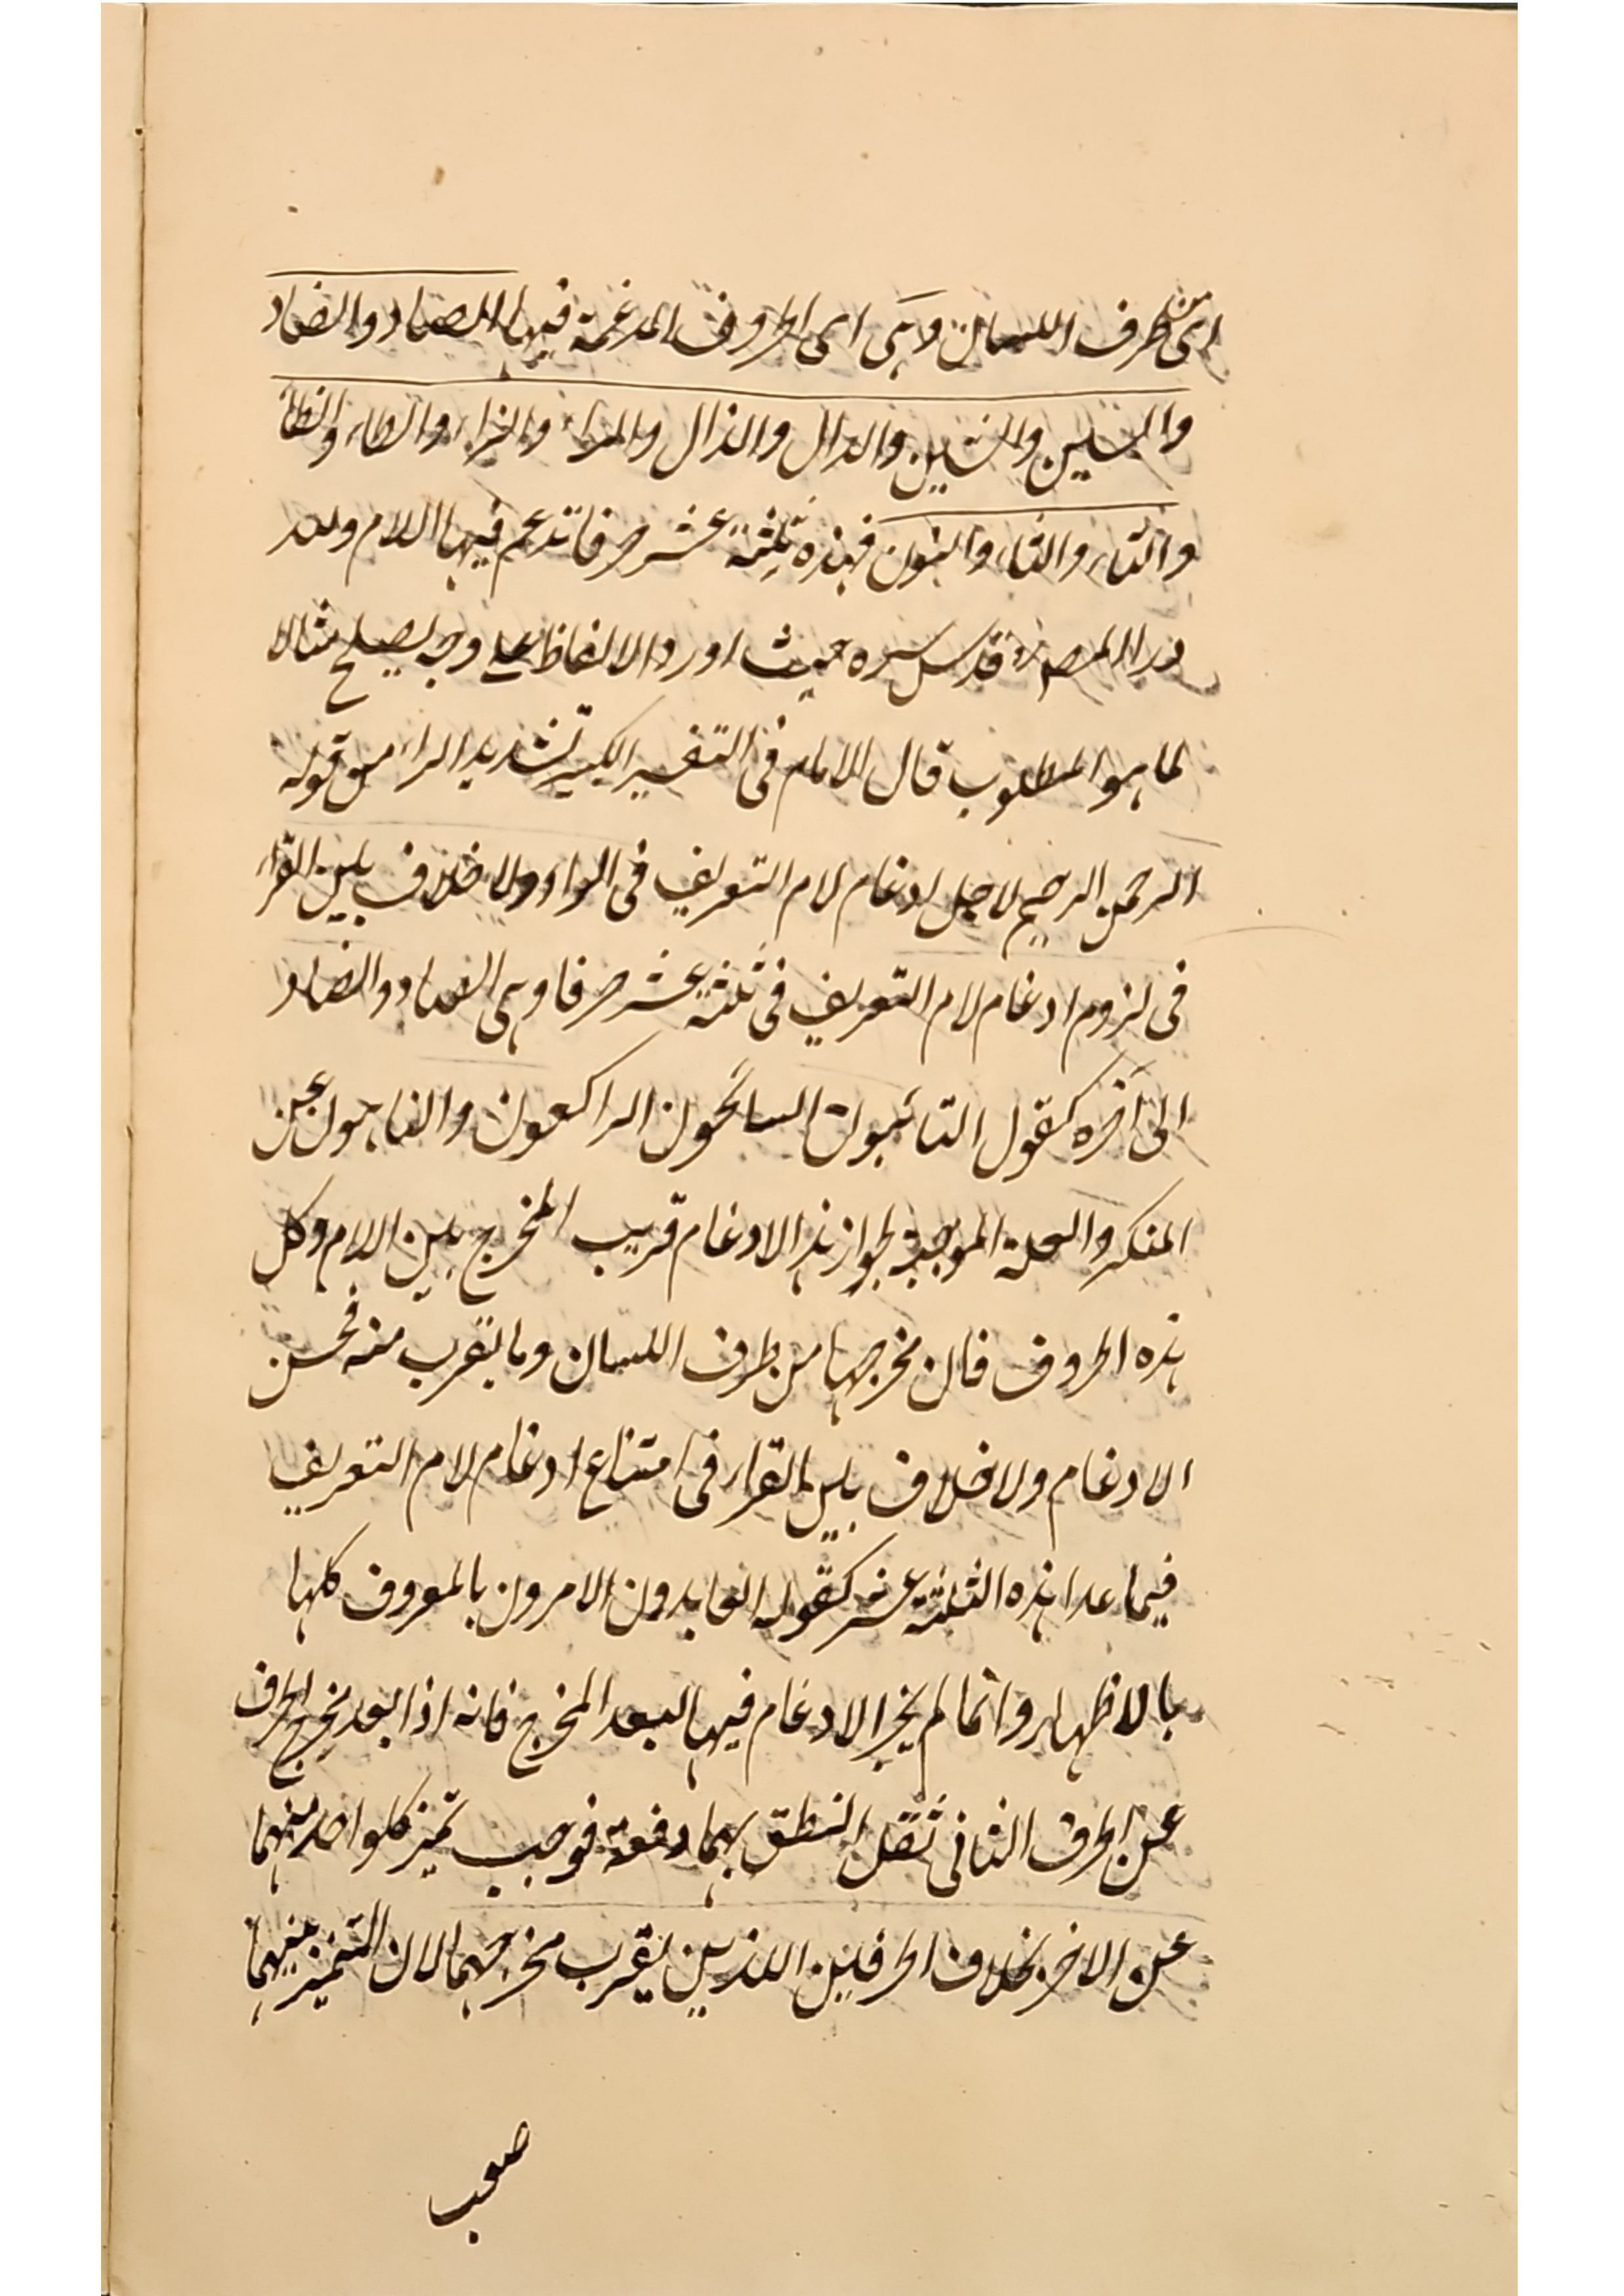 اى من طرف اللسان وهى اى الحروف المدغمة فيها الصاد والضاد
والسين والشين والدال والذال والراء والزاء والطاء والظاء
والتاء والثاء والنون فهذه ثلثة عشر حرفا تدغم فيها اللام ولله
در المصنف قدس سره حيث اورد الالفاظ على وجه يصلح مثالا
لما هو المطلوب قال الامام فى التفسير الكبير تشديد الراء من قوله
الرحمن الرحيم لاجل ادغام لام التعريف فى الراء ولا خلاف بين القراء
فى لزوم ادغام لام التعريف فى ثلثة عشر حرفا وهى الصاد والضاد
الى آخره كقوله التائبون السائحون الراكعون والناهون عن
المنكر والعلة الموجبة لجواز هذا الادغام قريب المخرج بين اللام وكل
هذه الحروف فان مخرجها من طرف اللسان وما يقرب منه فحسن
الادغام ولا خلاف بين القراء فى امتناع ادغام لام التعريف
فيما عدا هذه الثلثة عشر كقوله العابدون الامرون بالمعروف كلها
بالاظهار وانما لم يجز الادغام فيها لبعد المخرج فانه اذا بعد مخرج الحرف
عن الحرف الثانى ثقل النطق بهما دفعة فوجب تميز كلواحد منهما
عن الاخر بخلاف الحرفين اللذين يقرب مخرجهما لان التميز بينهما
صعب